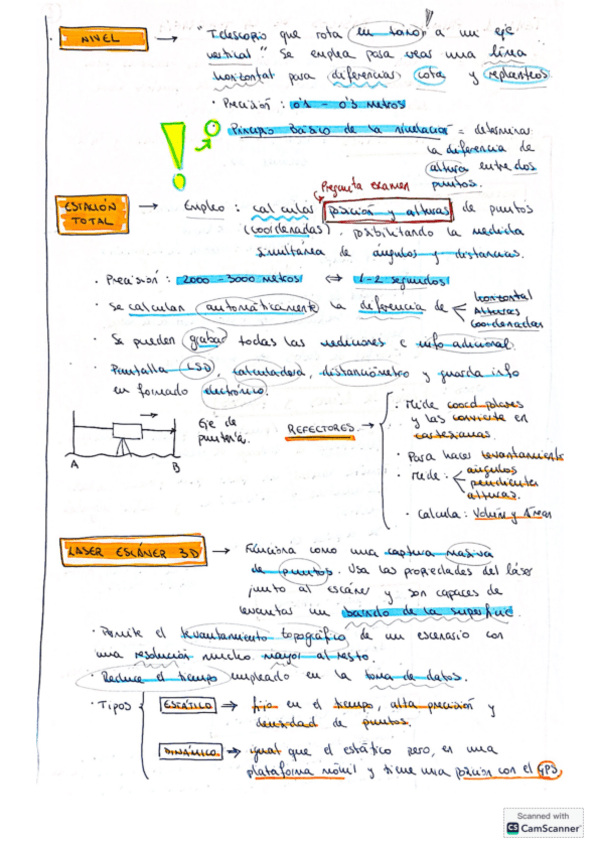 NIVEL → "Telescopio que rota en torno a un eje
vertical" Se emplea para crear una línea
horizontal para diferencias, cota y replanteos
· Precisión: 0'1 - 0'3 metros
! → Principio básico de la nivelación = determinar
la diferencia de
altura entre dos
puntos.
Pregunta examen
ESTACIÓN
TOTAL → Empleo: calcular posición y alturas de puntos
(coordenadas), posibilitando la medida
simultánea de ángulos y distancias.
· Precisión: 2000 - 3000 metros ⇔ 1-2 segundos
· Se calculan automáticamente la diferencia de
horizontal
Alturas
Coordenadas
· Se pueden grabar todas las mediciones e info adicional.
· Pantalla LSD, calculadora, distanciómetro y guarda info
en formato electrónico.
Eje de
puntería.
A B
REFECTORES →
· Mide coord polares
y las convierte en
cartesianas.
· Para hacer levantamiento
· Mide:
ángulos
pendientes
alturas.
· Calcula: Volúm y Áreas
LASER ESCÁNER 3D → Funciona como una captura masiva
de puntos. Usa las propiedades del láser
junto al escáner y son capaces de
levantar un barrido de la superficie.
· Permite el levantamiento topográfico de un escenario con
una resolución mucho mayor al resto.
· Reduce el tiempo empleado en la toma de datos.
· Tipos
ESTÁTICO → fijo en el tiempo, alta precisión y
densidad de puntos.
DINÁMICO → igual que el estático pero, en una
plataforma móvil y tiene una posición con el GPS.
Scanned with
CS CamScanner